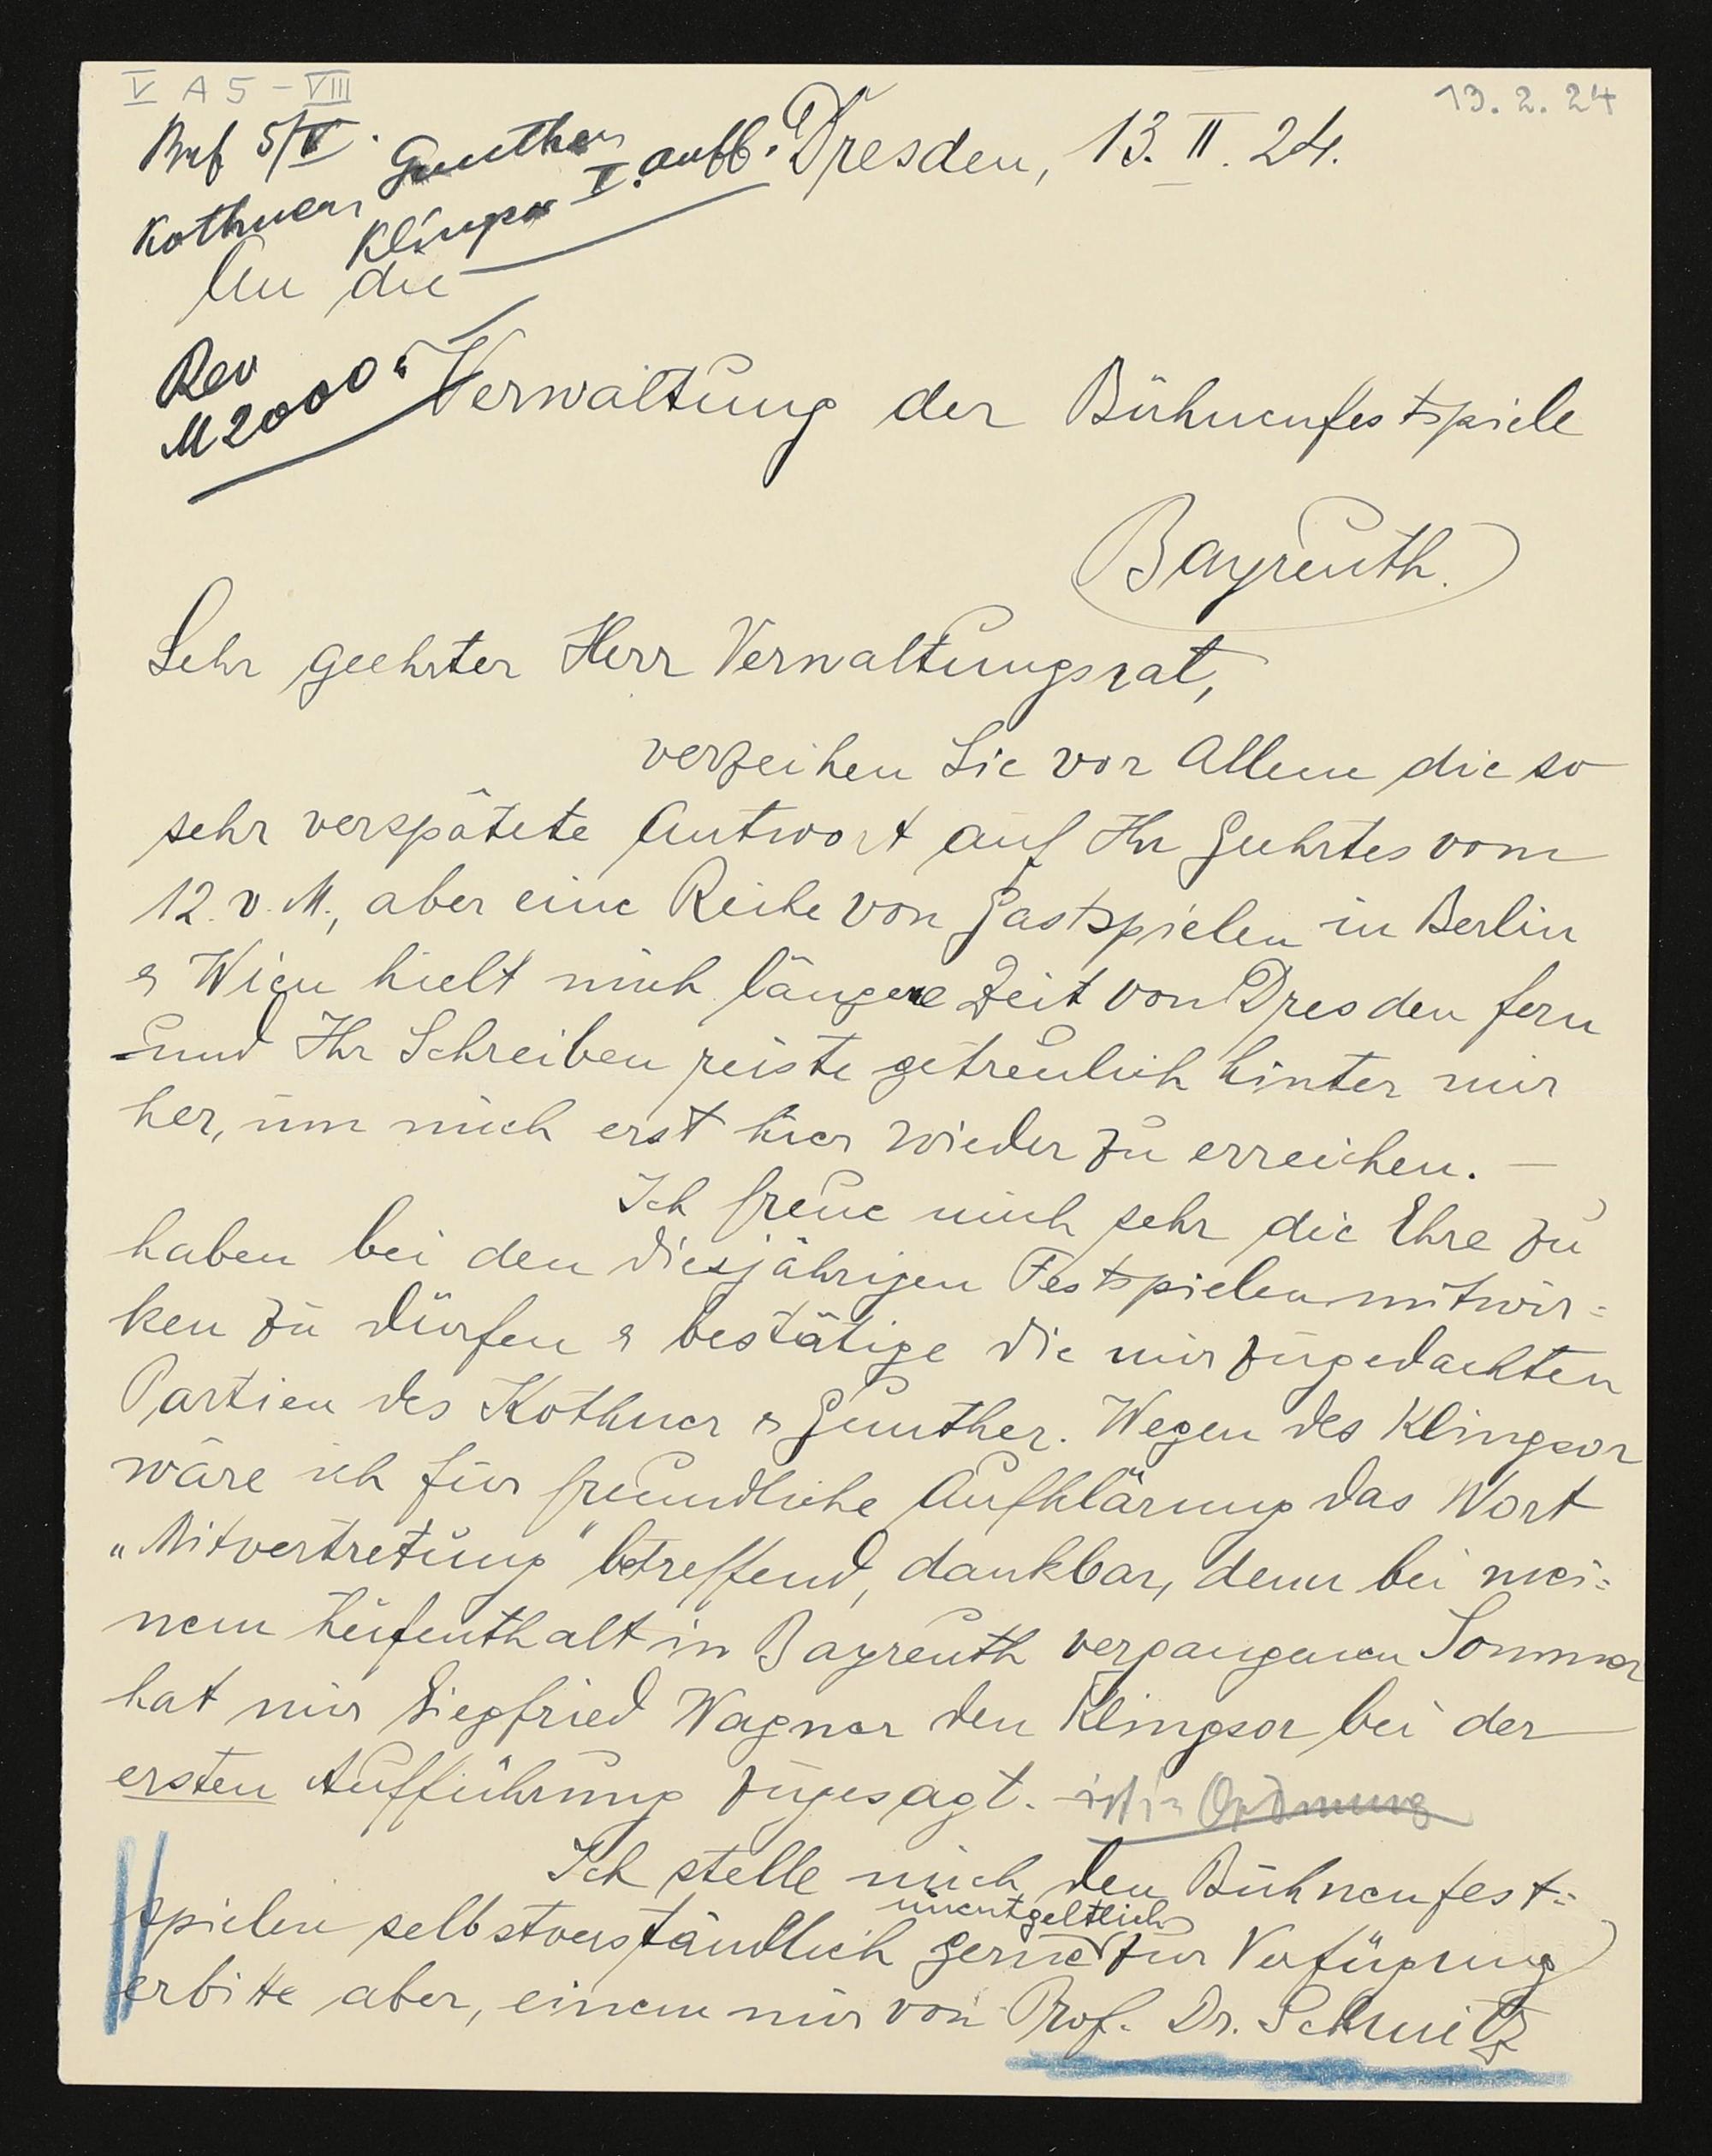 V A 5 - VIII
13. 2. 24
Brf 5/V. Gunther I. auff.
Kothner Klingsor
Dresden, 13. II. 24.
An die
Rev
M 2000
Verwaltung der Bühnenfestspiele
Bayreuth.
Sehr geehrter Herr Verwaltungsrat,
verzeihen Sie vor Allem die so
sehr verspätete Antwort auf Ihr Geehrtes vom
12. v. M., aber eine Reihe von Gastspielen in Berlin
& Wien hielt mich längere Zeit von Dresden fern
und Ihr Schreiben reiste getreulich hinter mir
her, um mich erst hier wieder zu erreichen. —
Ich freue mich sehr die Ehre zu
haben bei den diesjährigen Festspielen mitwir=
ken zu dürfen & bestätige die mir zugedachten
Partien des Kothner & Gunther. Wegen des Klingsor
wäre ich für freundliche Aufklärung das Wort
„Mitvertretung" betreffend, dankbar, denn bei mei=
nem Aufenthalt in Bayreuth vergangenen Sommer
hat mir Siegfried Wagner den Klingsor bei der
ersten Aufführung zugesagt. ist in Ordnung
Ich stelle mich den Bühnenfest=
unentgeltlich
spielen selbstverständlich gerne zur Verfügung
erbitte aber, einem mir von Prof. Dr. Schmitz